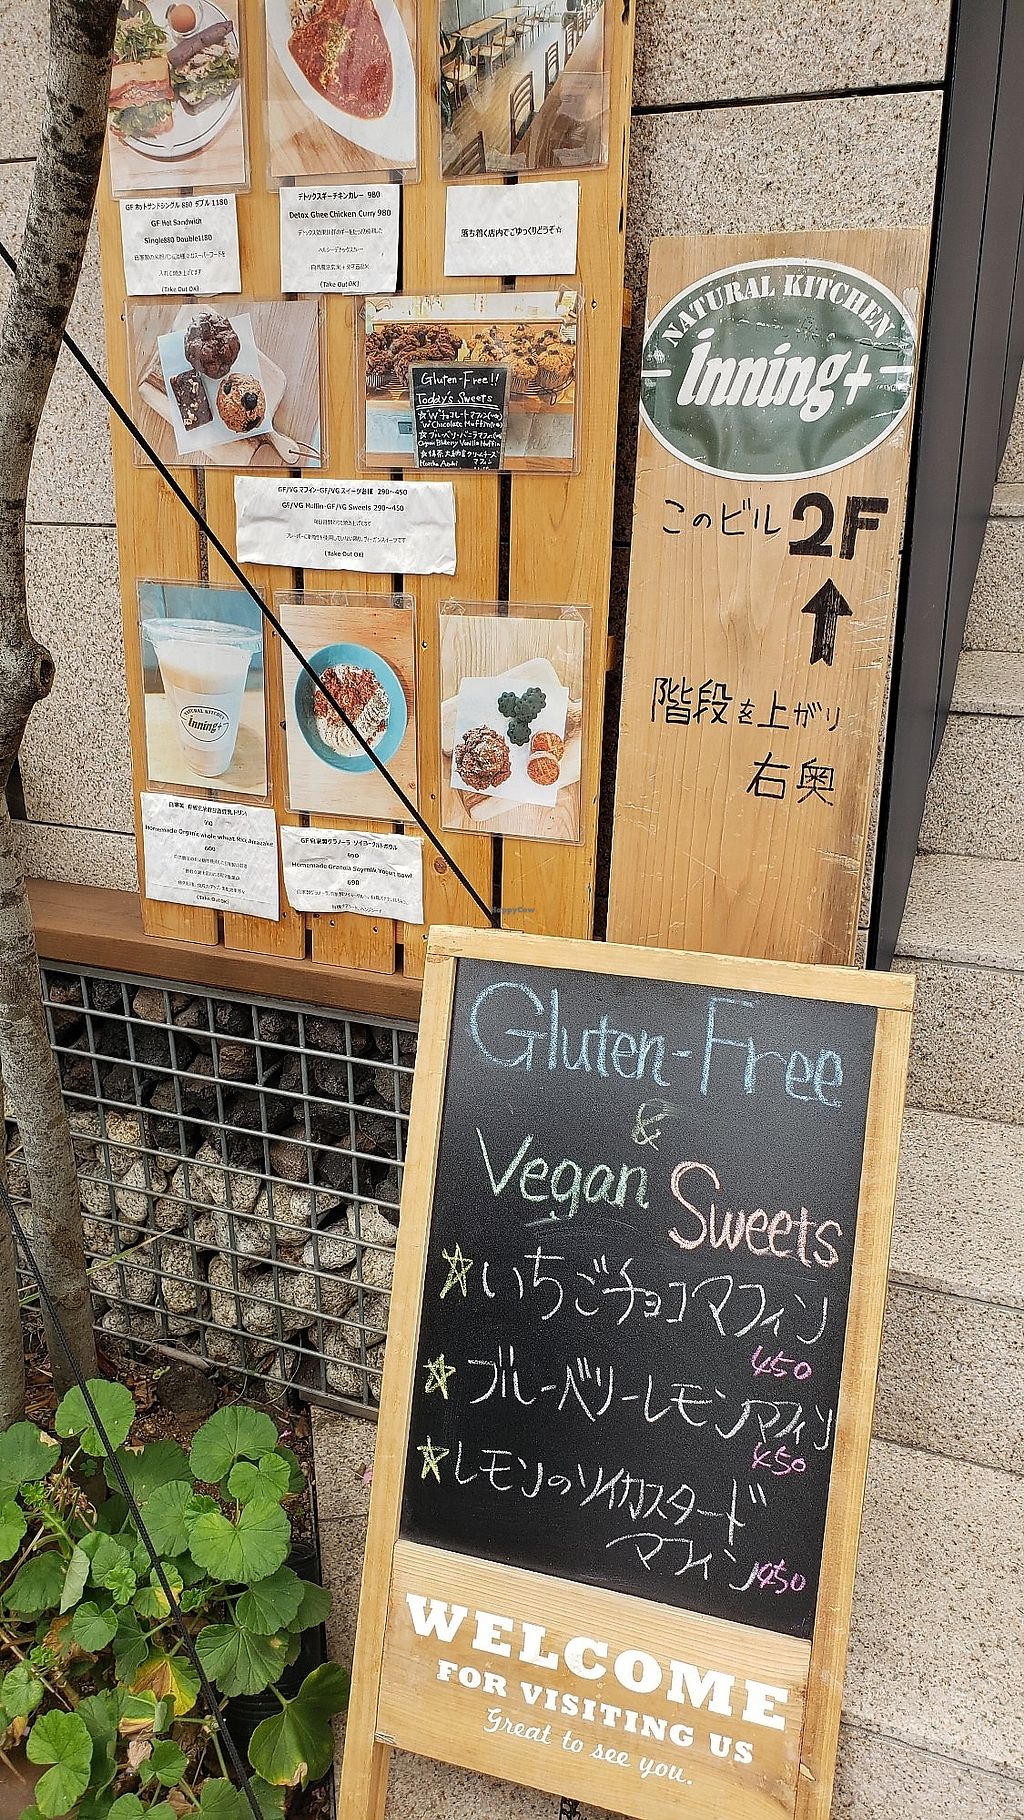 GF ホットサンドシングル 880 ダブル 1180
GF Hot Sandwich
Single880 Double1180
入れて焼き上げてます
(Take Out OK)
デトックスギーチキンカレー 980
Detox Ghee Chicken Curry 980
ヘルシーデトックスカレー
(Take Out OK)
落ち着く店内でごゆっくりどうぞ☆
Gluten-Free!!
Today's Sweets
☆Wチョコレートマフィン
W Chocolate Muffin
☆ブルーベリーバニラマフィン
Organ Blueberry Vanilla Muffin
☆抹茶大納言クリームチーズ
マフィン
Matcha Azuki
GF/VG マフィン・GF/VG スイーツ各種 290〜450
GF/VG Muffin・GF/VG Sweets 290〜450
(Take Out OK)
NATURAL KITCHEN
inning+
Homemade Organic whole wheat Rice Amazake
600
(Take Out OK)
GF自家製グラノーラ ソイヨーグルトボウル
690
Homemade Granola Soymilk Yogurt Bowl
690
NATURAL KITCHEN
inning+
このビル 2F
↑
階段を上がり
右奥
HappyCow
Gluten-Free
&
Vegan Sweets
☆いちごチョコマフィン
450
☆ブルーベリーレモンマフィン
450
☆レモンのソイカスタード
マフィン 450
WELCOME
FOR VISITING US
Great to see you.